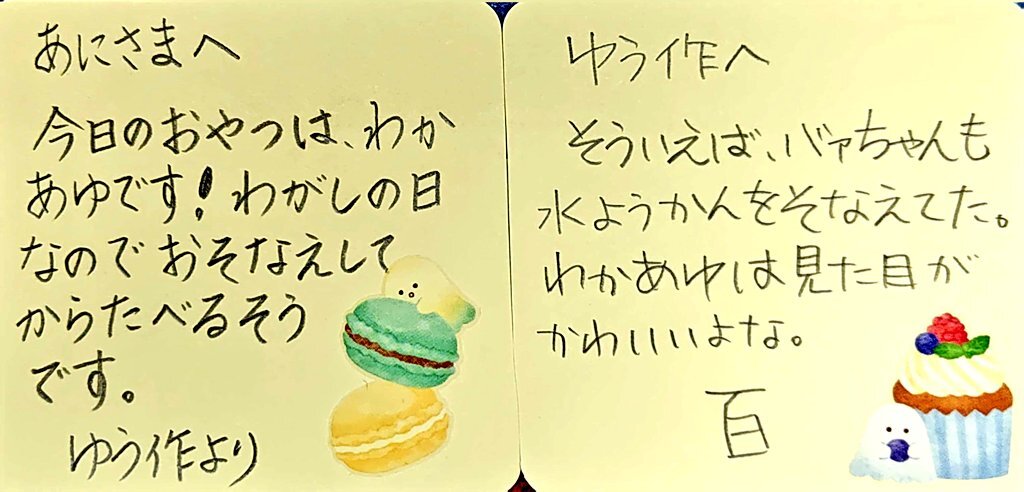 あにさまへ
今日のおやつは、わか
あゆです！わがしの日
なのでおそなえして
からたべるそう
です。
ゆう作より
ゆう作へ
そういえば、バァちゃんも
水ようかんをそなえてた。
わかあゆは見た目が
かわいいよな。
百